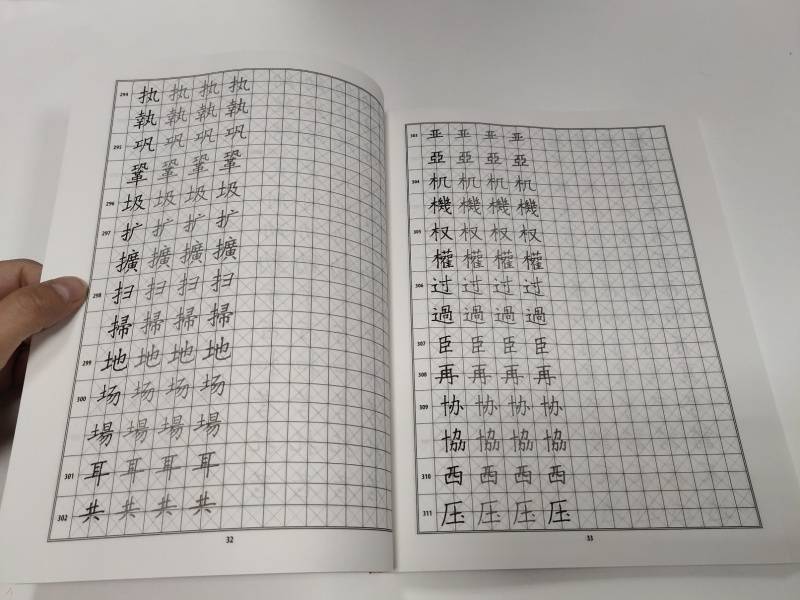 294 执 执 执 执
執 執 執 執
295 巩 巩 巩 巩
鞏 鞏 鞏 鞏
296 圾 圾 圾 圾
297 扩 扩 扩 扩
擴 擴 擴 擴
298 扫 扫 扫 扫
掃 掃 掃 掃
299 地 地 地 地
300 场 场 场 场
場 場 場 場
301 耳 耳 耳 耳
302 共 共 共 共
32
303 亚 亚 亚 亚
亞 亞 亞 亞
304 机 机 机 机
機 機 機 機
305 权 权 权 权
權 權 權 權
306 过 过 过 过
過 過 過 過
307 臣 臣 臣 臣
308 再 再 再 再
309 协 协 协 协
協 協 協 協
310 西 西 西 西
311 压 压 压 压
33